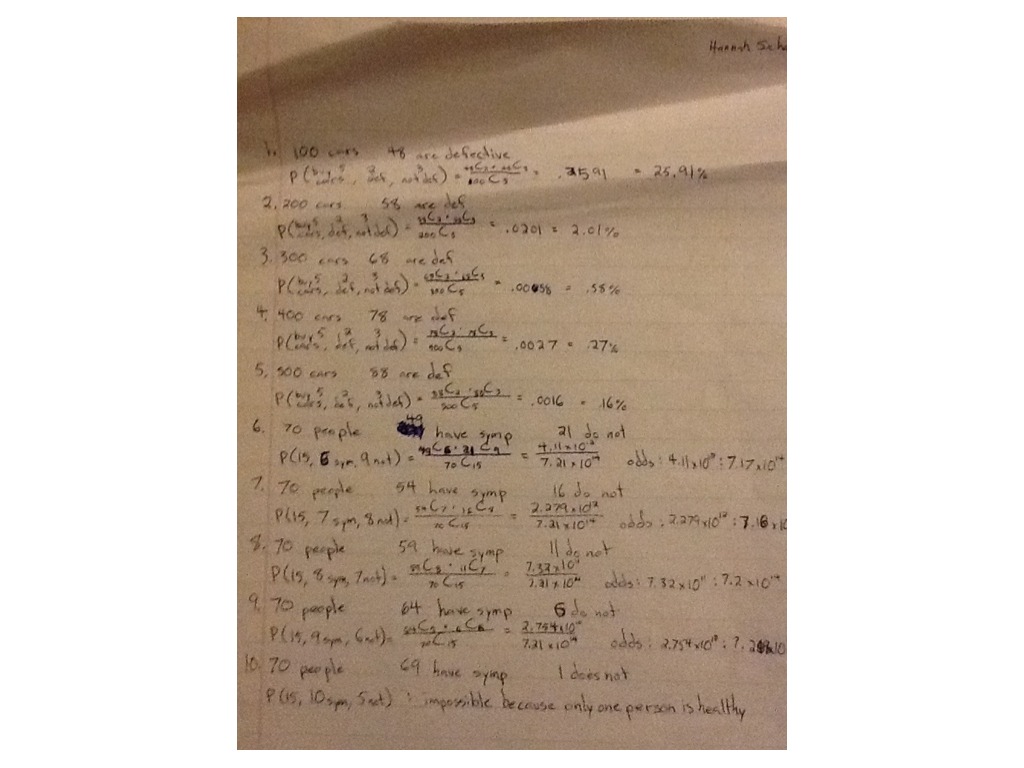 Hannah
1. 100 cars 48 are defective
P(buy 5 cars, 2 def, 3 not def) = / 100C5 = .3591 = 25.91%
2. 200 cars 58 are def
P(buy 5 cars, 2 def, 3 not def) = / 200C5 = .0201 = 2.01%
3. 300 cars 68 are def
P(buy 5 cars, 2 def, 3 not def) = / 300C5 = .00058 = .58%
4. 400 cars 78 are def
P(buy 5 cars, 2 def, 3 not def) = / 400C5 = .0027 = .27%
5. 500 cars 88 are def
P(buy 5 cars, 2 def, 3 not def) = / 500C5 = .0016 = .16%
6. 70 people 49 have symp 21 do not
P(15, 6 sym, 9 not) = 49C6 · 21C9 / 70C15 = / 7.21x10¹⁴ odds: : 7.17x10¹⁴
7. 70 people 54 have symp 16 do not
P(15, 7 sym, 8 not) = 54C7 · 16C8 / 70C15 = 2.279x10¹² / 7.21x10¹⁴ odds: 2.279x10¹² :
8. 70 people 59 have symp 11 do not
P(15, 8 sym, 7 not) = 59C8 · 11C7 / 70C15 = 7.32x10¹¹ / 7.21x10¹⁴ odds: 7.32x10¹¹ : 7.2x10¹⁴
9. 70 people 64 have symp 6 do not
P(15, 9 sym, 6 not) = 64C9 · 6C6 / 70C15 = 2.754x10¹⁰ / 7.21x10¹⁴ odds: 2.754x10¹⁰ :
10. 70 people 69 have symp 1 does not
P(15, 10 sym, 5 not) : impossible because only one person is healthy